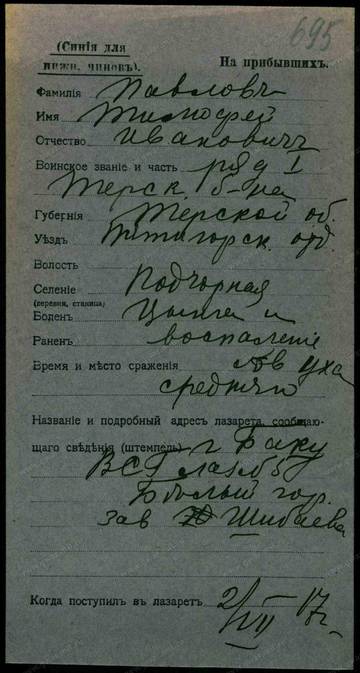 695
(Синія для
нижн. чиновъ).
На прибывшихъ.
Фамилія Павловъ
Имя Тимофей
Отчество Ивановичъ
Воинское званіе и часть ряд I
Терск. б-на
Губернія Терской об.
Уѣздъ Пятигорск. отд.
Волость
Селеніе Подгорная
(деревня, станица)
Боленъ Цынга и
Раненъ воспаленіе
Время и мѣсто сраженія лѣв уха
средняго
Названіе и подробный адресъ лазарета, сообщаю-
щаго свѣдѣнія (штемпель) г Баку
ВСГ лаз № 5
Бѣлый гор.
зав Шибаева
Когда поступилъ въ лазаретъ 2/VII 17 г.